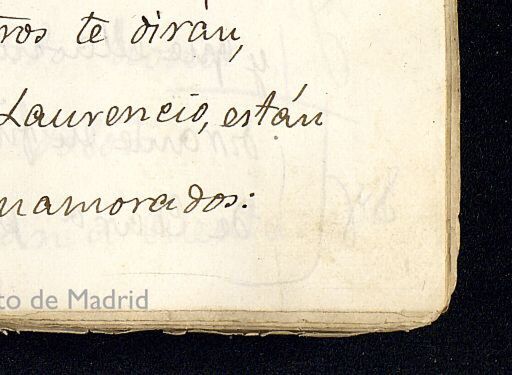 ros te dirán,
Laurencio, están
namorados:
to de Madrid